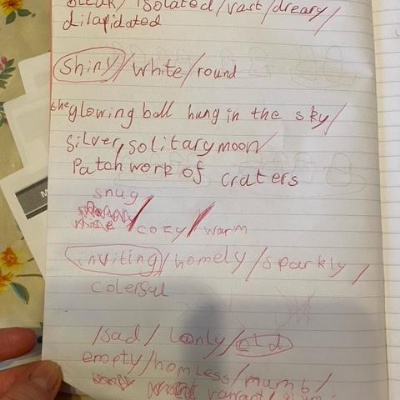 bleak/isolated/vast/dreary/
dilapidated
shiny/white/round
the glowing ball hung in the sky/
silver, solitary moon/
Patchwork of craters
snug
/cozy/warm
inviting/homely/sparkly/
colerful
/sad/lonly/old
empty/homless/numb/